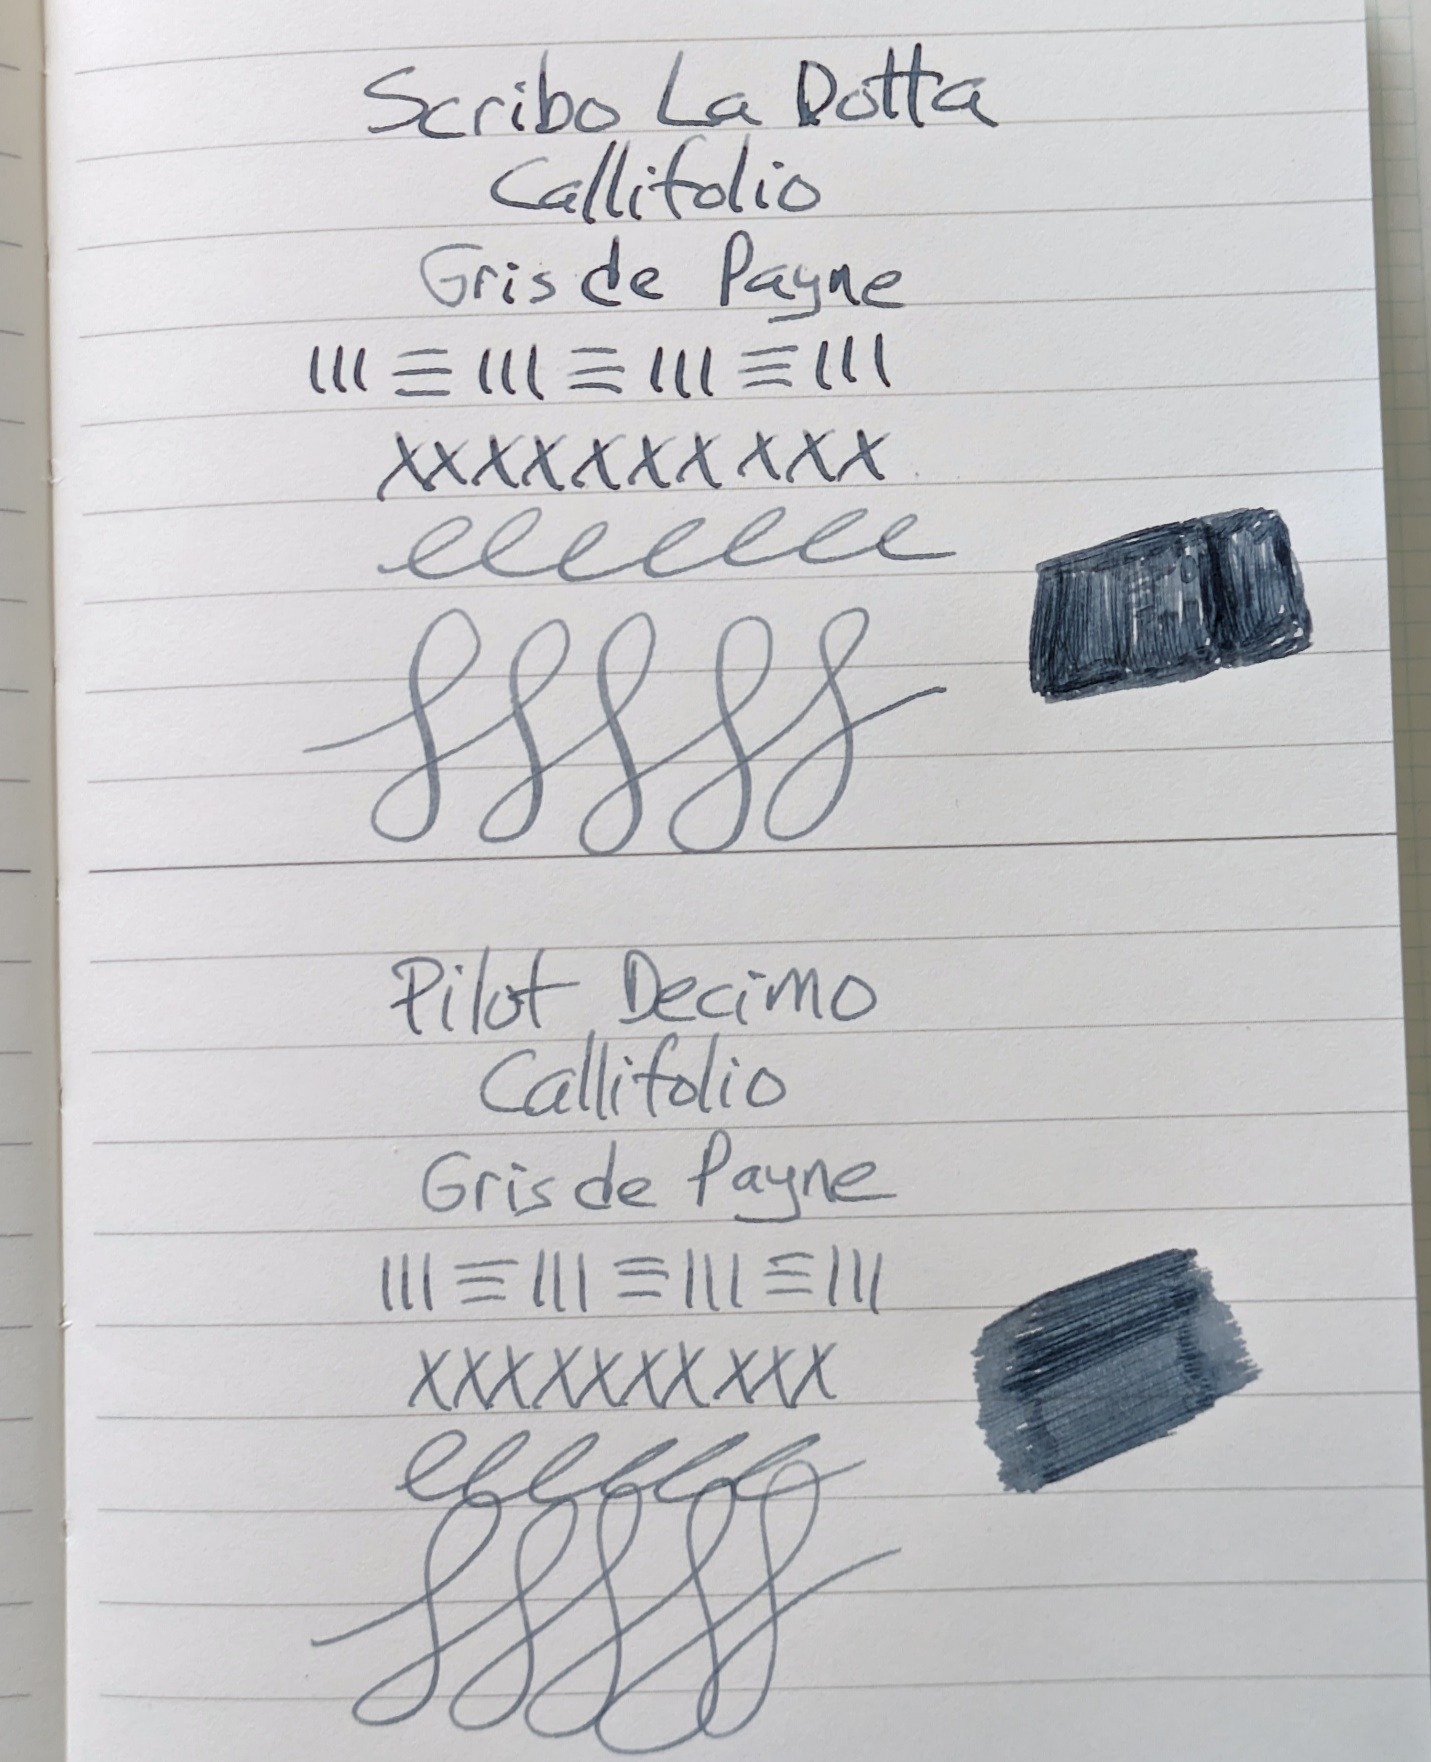 Scribo La Dotta
Callifolio
Gris de Payne
III ≡ III ≡ III ≡ III
XXXXXXXXXX
eeeeeee
fffff
Pilot Decimo
Callifolio
Gris de Payne
III ≡ III ≡ III ≡ III
XXXXXXXXXX
eeeeeee
fffff